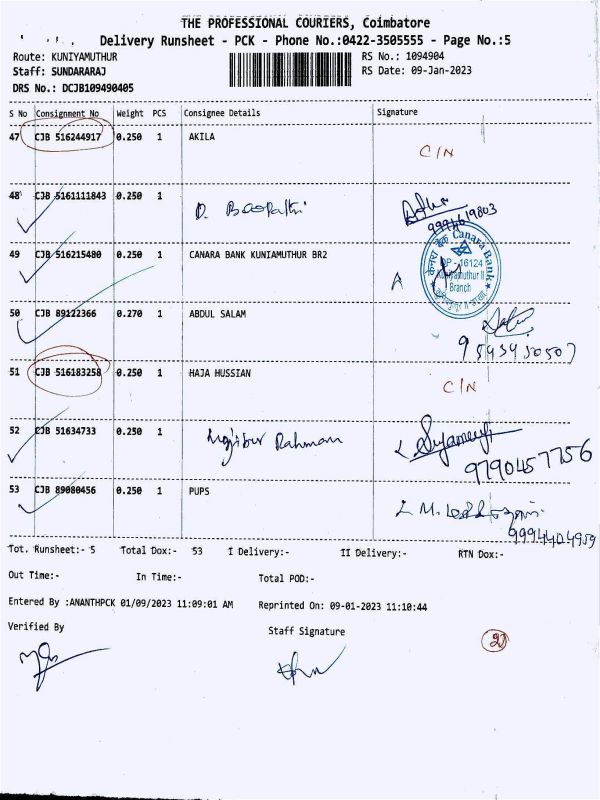 THE PROFESSIONAL COURIERS, Coimbatore
Delivery Runsheet - PCK - Phone No.:0422-3505555 - Page No.:5
Route: KUNIYAMUTHUR
RS No.: 1094904
Staff: SUNDARARAJ
RS Date: 09-Jan-2023
DRS No.: DCJB109490405
S No Consignment No Weight PCS Consignee Details Signature
47 CJB 516244917 0.250 1 AKILA C/N
48 CJB 5161111843 0.250 1 D.
49 CJB 516215480 0.250 1 CANARA BANK KUNIAMUTHUR BR2 A
Canara Bank
DP - 16124
Kuniyamuthur II
Branch
50 CJB 89122366 0.270 1 ABDUL SALAM
51 CJB 516183258 0.250 1 HAJA HUSSIAN C/N
52 CJB 51634733 0.250 1 Mujibur Rahman
9790457756
53 CJB 89080456 0.250 1 PUPS
Tot. Runsheet:- 5 Total Dox:- 53 I Delivery:- II Delivery:- RTN Dox:-
Out Time:- In Time:- Total POD:-
Entered By :ANANTHPCK 01/09/2023 11:09:01 AM Reprinted On: 09-01-2023 11:10:44
Verified By Staff Signature